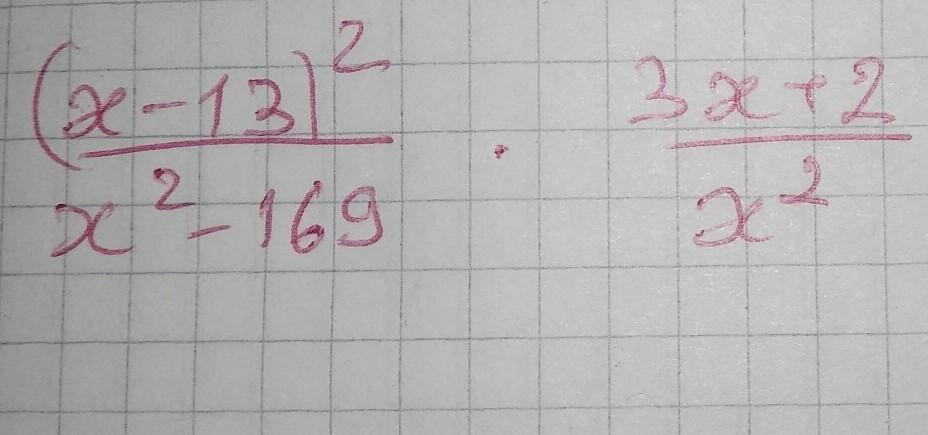 (x-13)² / x²-169 · 3x+2 / x²